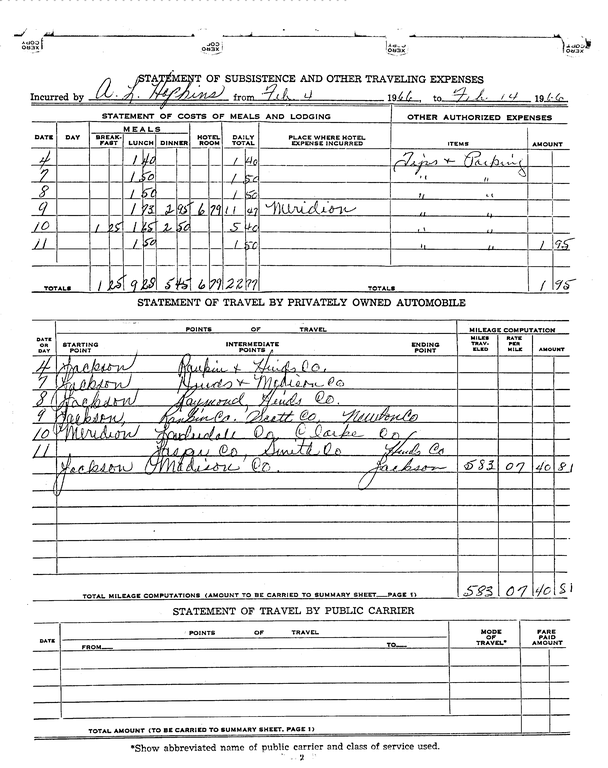 XERO COPY XERO COPY XERO COPY XERO COPY
STATEMENT OF SUBSISTENCE AND OTHER TRAVELING EXPENSES
Incurred by A. L. Hopkins from Feb. 4 1966, to Feb. 14 1966
STATEMENT OF COSTS OF MEALS AND LODGING OTHER AUTHORIZED EXPENSES
DATE DAY MEALS BREAK-FAST LUNCH DINNER HOTEL ROOM DAILY TOTAL PLACE WHERE HOTEL EXPENSE INCURRED ITEMS AMOUNT
4 1 40 1 40 Tips & Parking
7 1 50 1 50 " "
8 1 50 1 50 " "
9 1 73 2 95 6 79 11 47 Meridion " "
10 1 25 1 65 2 50 5 40 " "
11 1 50 1 50 " " 1 95
TOTALS 1 25 9 28 5 45 6 79 22 77 TOTALS 1 95
STATEMENT OF TRAVEL BY PRIVATELY OWNED AUTOMOBILE
DATE OR DAY POINTS OF TRAVEL MILEAGE COMPUTATION
STARTING POINT INTERMEDIATE POINTS ENDING POINT MILES TRAV-ELED RATE PER MILE AMOUNT
4 Jackson Rankin & Hinds Co.
7 Jackson Hinds & Madison Co
8 Jackson Raymond, Hinds Co.
9 Jackson, Rankin Co. Scott Co, Newton Co
10 Meridion Lauderdale Co, Clarke Co,
11 Jasper Co, Smith Co Hinds Co
Jackson Madison Co. Jackson 583 07 40 81
TOTAL MILEAGE COMPUTATIONS (AMOUNT TO BE CARRIED TO SUMMARY SHEET PAGE 1) 583 07 40 81
STATEMENT OF TRAVEL BY PUBLIC CARRIER
DATE POINTS OF TRAVEL MODE OF TRAVEL* FARE PAID AMOUNT
FROM TO
TOTAL AMOUNT (TO BE CARRIED TO SUMMARY SHEET, PAGE 1)
*Show abbreviated name of public carrier and class of service used.
- 2 -